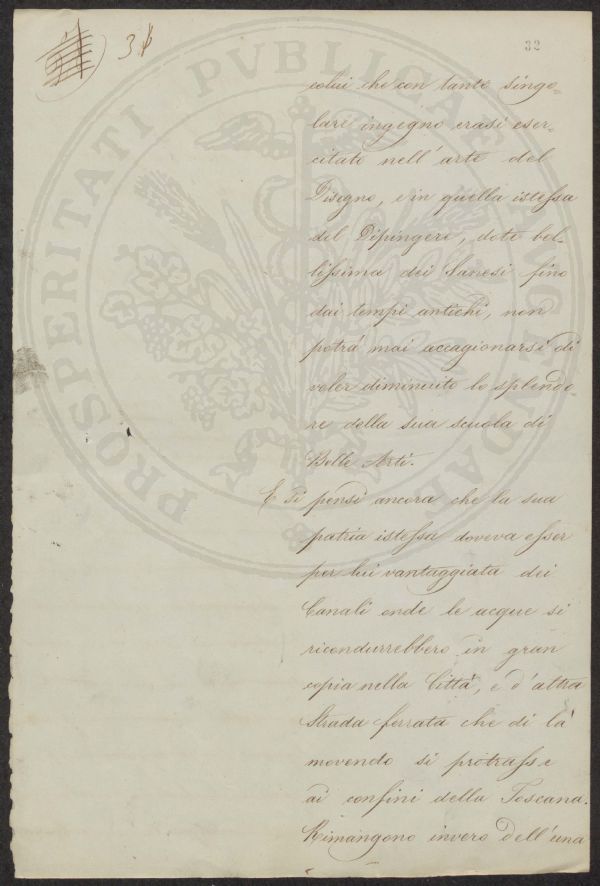 3
32
colui che con tanto singo=
lare ingegno erasi eser=
citato nell'arte del
Disegno, e in quella istessa
del Dipingere, dote bel=
lissima dei Sanesi fino
dai tempi antichi, non
potrà mai accagionarsi di
voler diminuito lo splendo
re della sua scuola di
Belle Arti.
E si pensi ancora che la sua
patria istessa doveva esser
per lui vantaggiata dei
Canali onde le acque si
ricondurrebbero in gran
copia nella Città, e d'altra
Strada ferrata che di là
movendo si protrasse
ai confini della Toscana.
Rimangono invero dell'una
PROSPERITATI PVBLICAE AVGENDAE